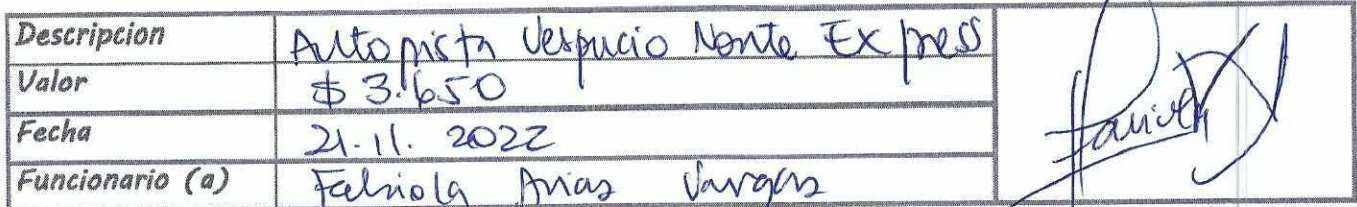 Descripcion Autopista Vespucio Norte Express
Valor $ 3.650
Fecha 21.11.2022
Funcionario (a) Fabiola Arias Vargas